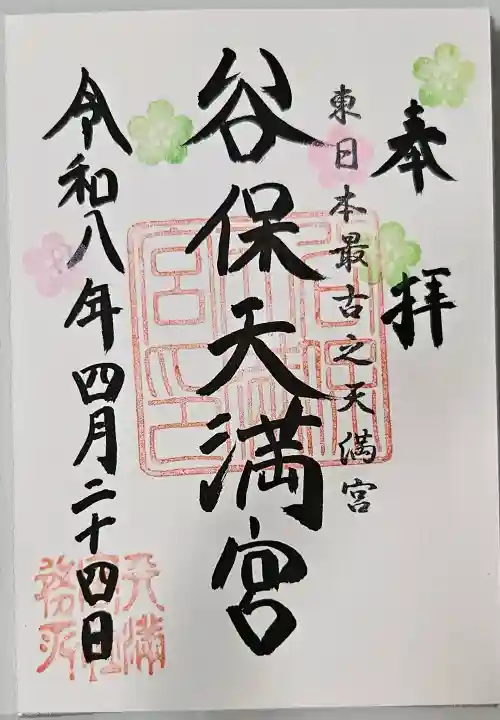 奉拝
東日本最古之天満宮
谷保天満宮
令和八年四月二十四日